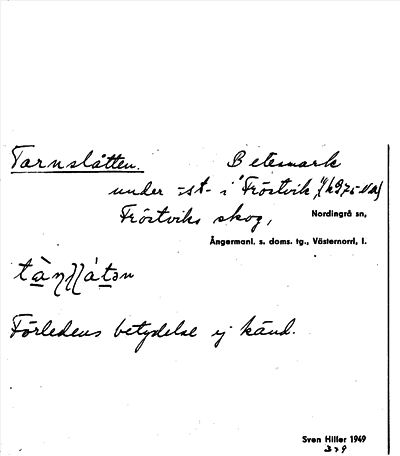 Tarnslåtten. Betesmark
under -st- i "Fröstvik"
Fröstviks skog, Nordingrå sn,
Ångermanl. s. doms. tg., Västernorrl, l.
Förledens betydelse ej känd.
Sven Hiller 1949